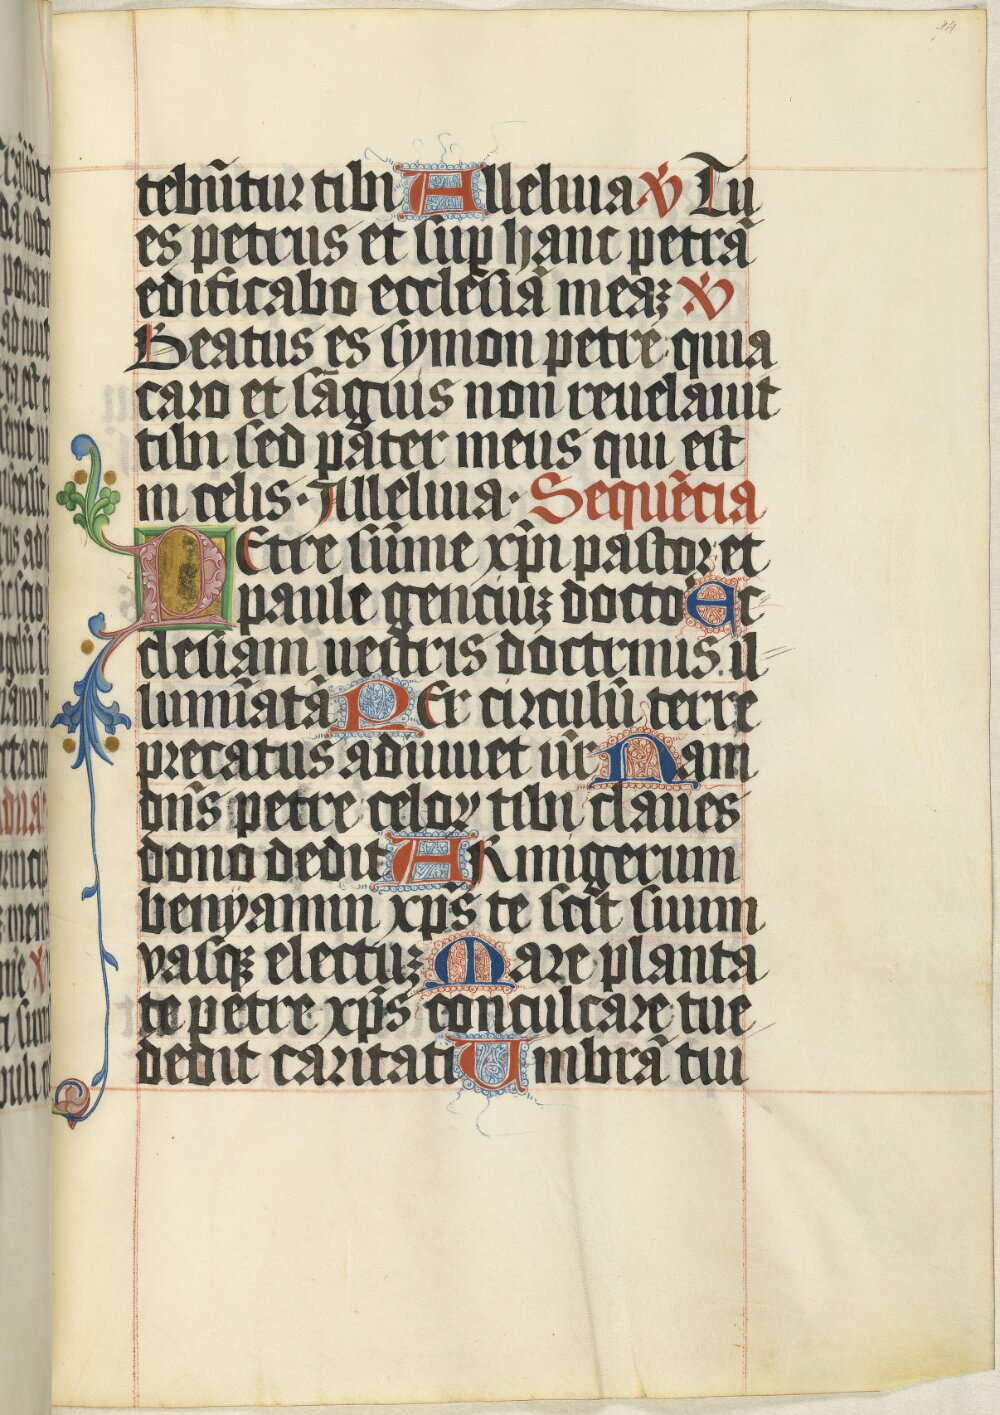 tebūtur tibi Alleluia ꝟ Tu
es petrus et suꝑ hanc petrā
edificabo ecclesiā meaꝫ ꝟ
Beatus es symon petre quia
caro et sāguis non reuelauit
tibi sed pater meus qui est
in celis · Alleluia · Sequēcia
PEtre sūme xp̄i pastor et
paule genciuꝫ docto Ec
clesiam uestris doctrinis il
luminatā PEr circulū terre
precatus adiuuet ur̄ Nam
dn̄s petre celoꝝ tibi claues
dono dedit ARmigerum
benyamin xp̄s te scit suum
vasqꝫ electuꝫ Mare planta
te petre xp̄s conculcare tue
dedit caritati Umbrā tui